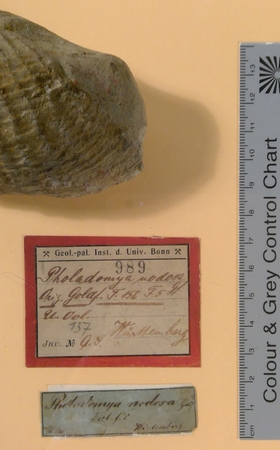 Geol.-pal. Inst. d. Univ. Bonn
989
Pholadomya nodosa
Orig. Goldf. T. 156 F. 5
157
Württemberg
Inv. №
Pholadomya nodosa Goldf
Württemberg
Colour & Grey Control Chart
cm 1 2 3 4 5 6 7 8 9 10 11 12 13